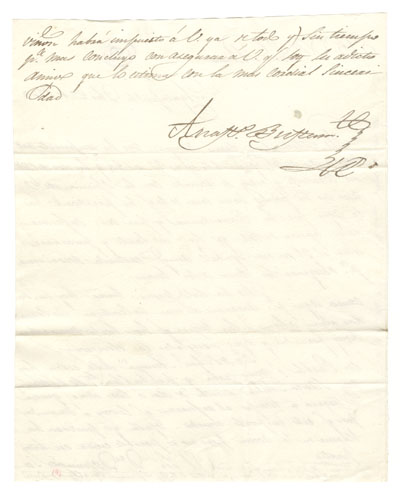 habrá impuesto á V. ya de todo y Sin tiempo
pª. mas concluyo con asegurar á V. q. soy su adicto
que lo estima con la mas cordial Sinceri
dad
Anastº. Bustamte.